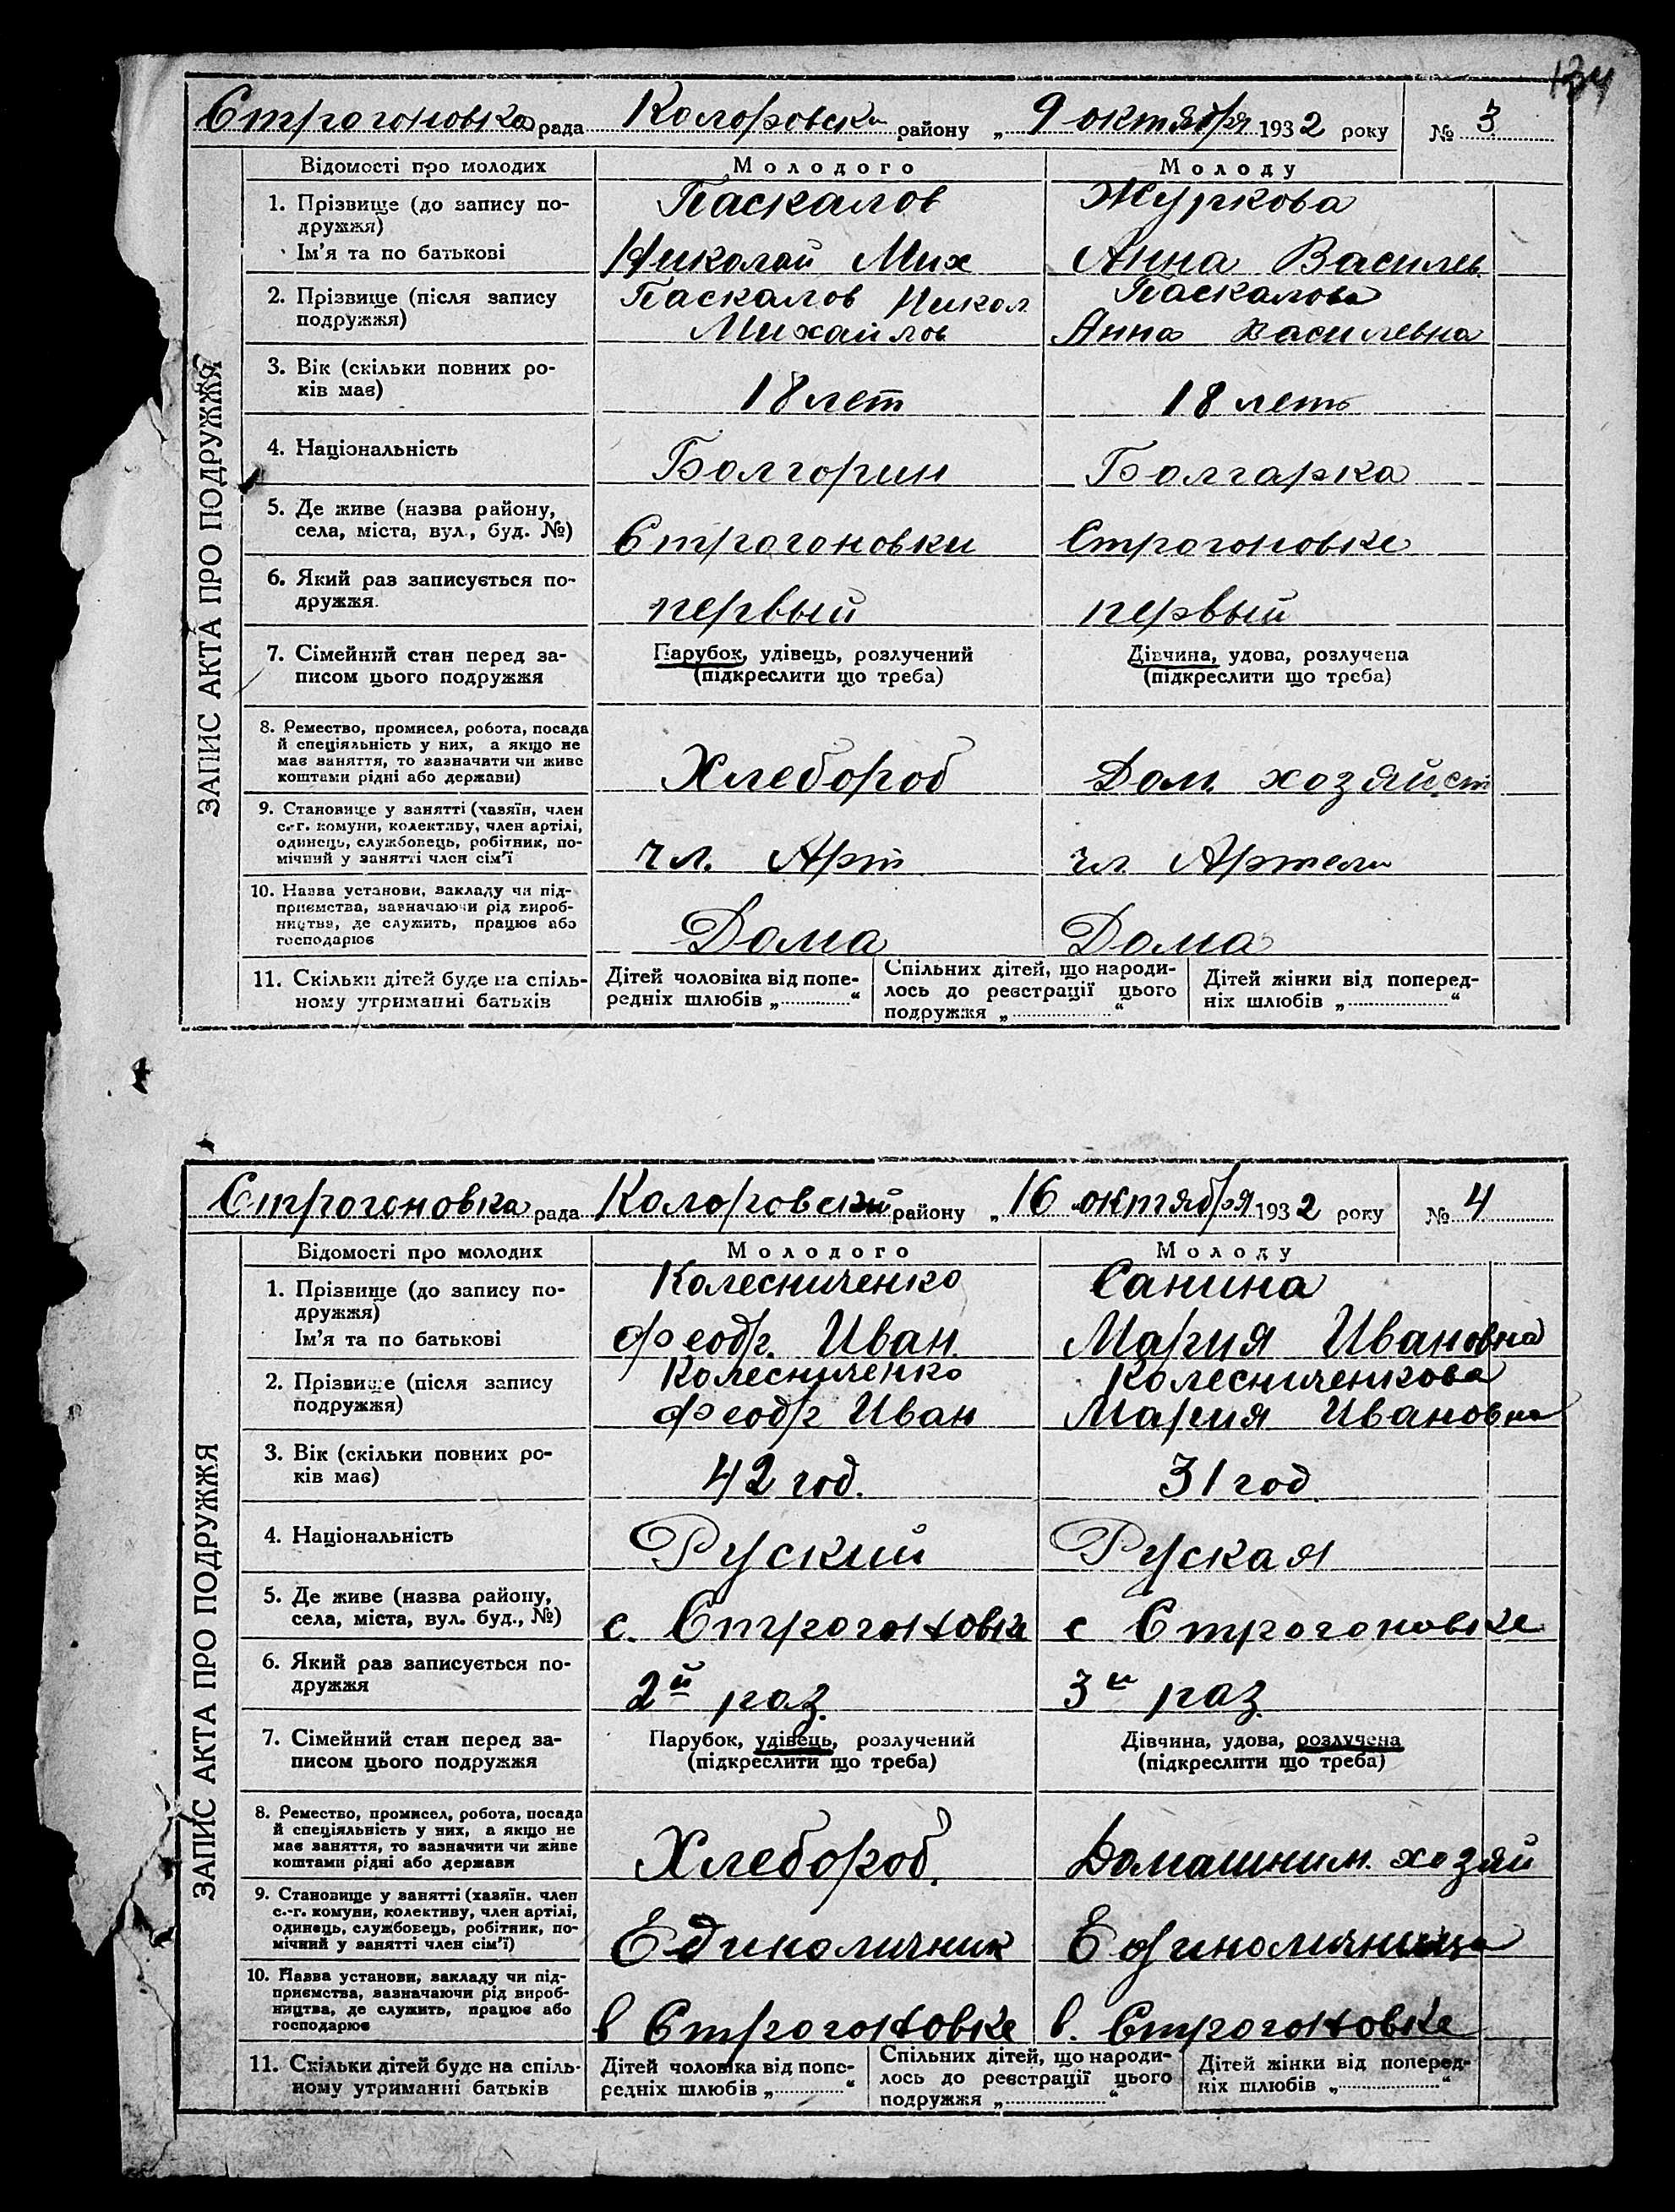 134
Строгоновка рада Колоровски району „ 9 октября 1932 року № 3
ЗАПИС АКТА ПРО ПОДРУЖЖЯ
Відомості про молодих Молодого Молоду
1. Прізвище (до запису по-
дружжя)
Паскалов Журкова
Ім'я та по батькові Николай Мих Анна Василев.
2. Прізвище (після запису
подружжя)
Паскалов Никол Паскалова
Михайлов Анна Василевна
3. Вік (скільки повних ро-
ків має)
18 лет 18 леть
4. Національність Болгорин Болгарка
5. Де живе (назва району,
села, міста, вул., буд. №)
Строгоновки Строгоновке
6. Який раз записується по-
дружжя.
первый первый
7. Сімейний стан перед за-
писом цього подружжя
Парубок, удівець, розлучений
(підкреслити що треба)
Дівчина, удова, розлучена
(підкреслити що треба)
8. Ремество, промисел, робота, посада
й спеціяльність у них, а якщо не
має заняття, то зазначити чи живе
коштами рідні або держави)
Хлебороб Дом. хозяйст
9. Становище у занятті (хазяїн, член
с.-г. комуни, колективу, член артілі,
одинець, службовець, робітник, по-
мічний у занятті член сім'ї
чл. Арт чл Артели
10. Назва установи, закладу чи під-
приємства, зазначаючи рід вироб-
ництва, де служить, працює або
господарює
Дома Дома
11. Скільки дітей буде на спіль-
ному утриманні батьків
Дітей чоловіка від попе-
редніх шлюбів „ “
Спільних дітей, що народи-
лось до реєстрації цього
подружжя „ “
Дітей жінки від поперед-
ніх шлюбів „ “
Строгоновка рада Колоровский району „ 16 октября 1932 року № 4
ЗАПИС АКТА ПРО ПОДРУЖЖЯ
Відомості про молодих Молодого Молоду
1. Прізвище (до запису по-
дружжя)
Колесниченко Санина
Ім'я та по батькові Феодр. Иван. Мария Ивановна
2. Прізвище (після запису
подружжя)
Колесниченко Колесниченкова
Феодр Иван Мария Ивановна
3. Вік (скільки повних ро-
ків має)
42 год. 31 год
4. Національність Руский Руская
5. Де живе (назва району,
села, міста, вул. буд., №)
с. Строгоновке с Строгоновке
6. Який раз записується по-
дружжя
2й раз. 3й раз
7. Сімейний стан перед за-
писом цього подружжя
Парубок, удівець, розлучений
(підкреслити що треба)
Дівчина, удова, розлучена
(підкреслити що треба)
8. Ремество, промисел, робота, посада
й спеціяльність у них, а якщо не
має заняття, то зазначити чи живе
коштами рідні або держави
Хлебороб. Домашним. хозяй
9. Становище у занятті (хазяїн. член
с.-г. комуни, колективу, член артілі,
одинець, службовець, робітник, по-
мічний у занятті член сім'ї)
Единоличник Единоличница
10. Назва установи, закладу чи під-
приємства, зазначаючи рід вироб-
ництва, де служить, працює або
господарює
в Строгоновке в. Строгоновке
11. Скільки дітей буде на спіль-
ному утриманні батьків
Дітей чоловіка від попе-
редніх шлюбів „ “
Спільних дітей, що народи-
лось до реєстрації цього
подружжя „ “
Дітей жінки від поперед-
ніх шлюбів „ “